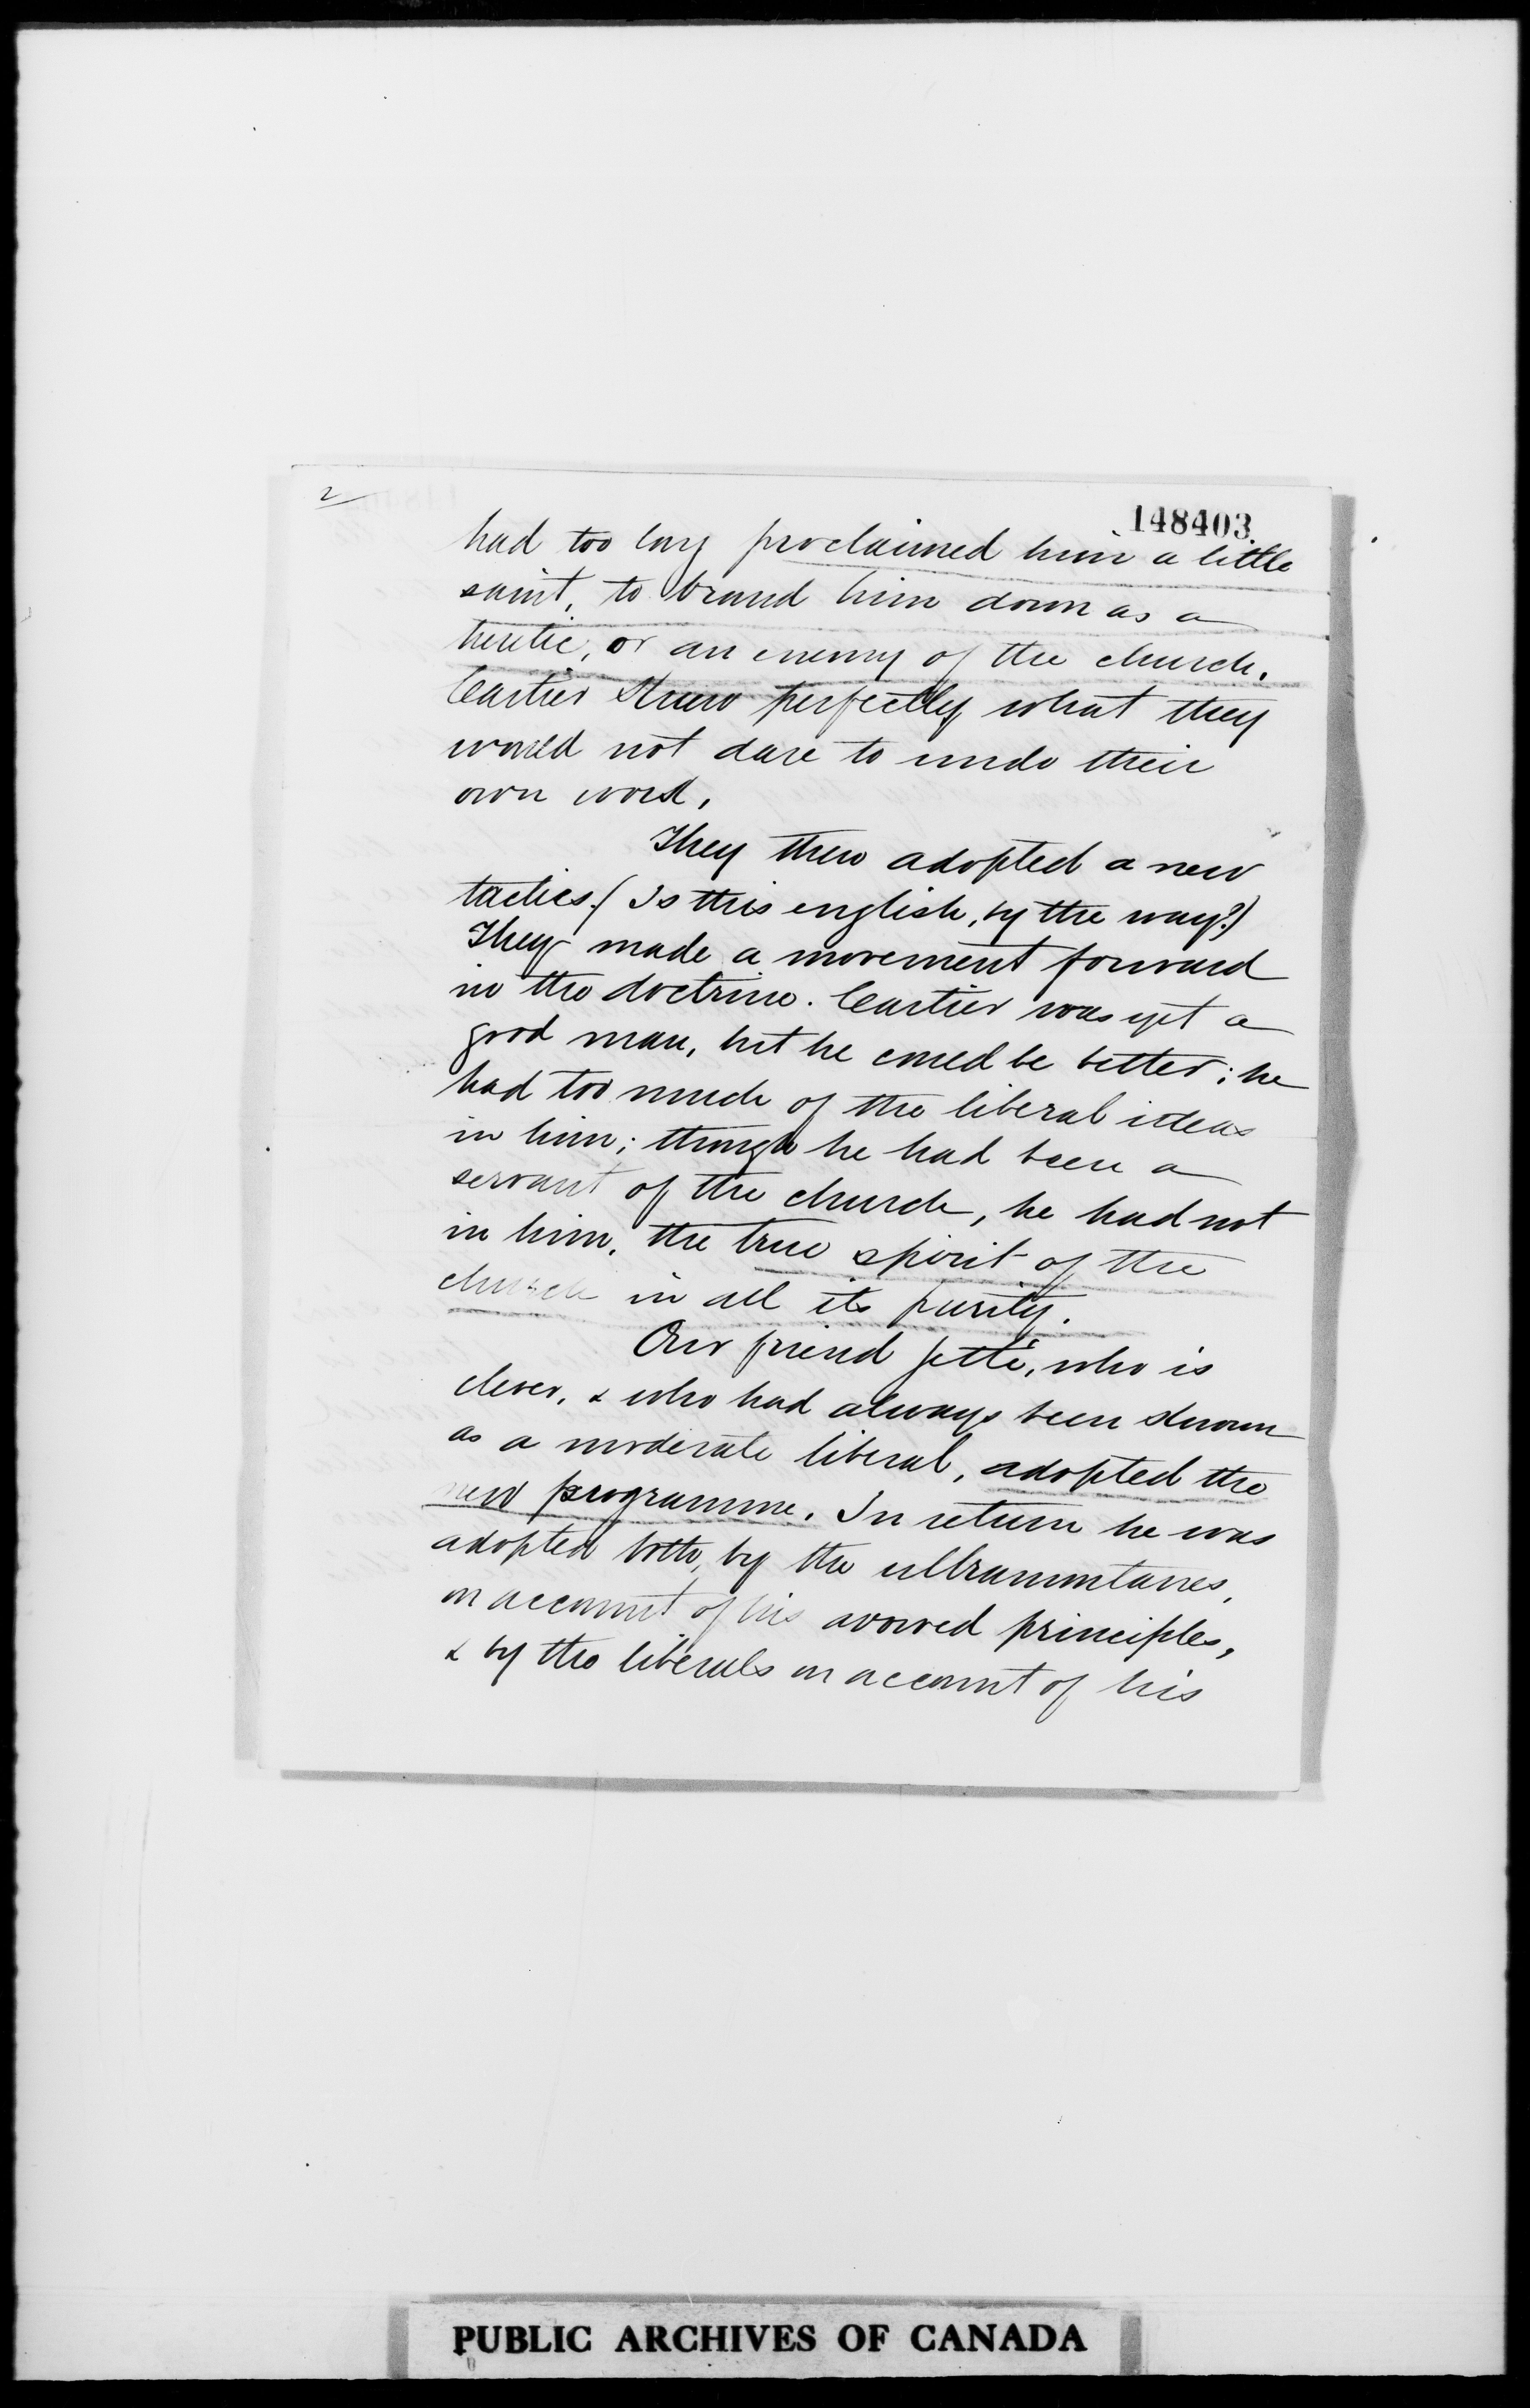 2
148403
had too long proclaimed him a little
saint, to brand him down as a
heretic, or an enemy of the church.
Cartier knew perfectly what they
would not dare to undo their
own word.
They then adopted a new
tactics. (Is this english, by the way?)
They made a movement forward
in the doctrine. Cartier was yet a
good man, but he could be better; he
had too much of the liberal ideas
in him; though he had been a
servant of the church, he had not
in him, the true spirit of the
church in all its purity.
Our friend Jetté, who is
clever, & who had always been known
as a moderate liberal, adopted the
new programme. In return he was
adopted both, by the ultramontanes,
on account of his avowed principles,
& by the liberals on account of his
PUBLIC ARCHIVES OF CANADA